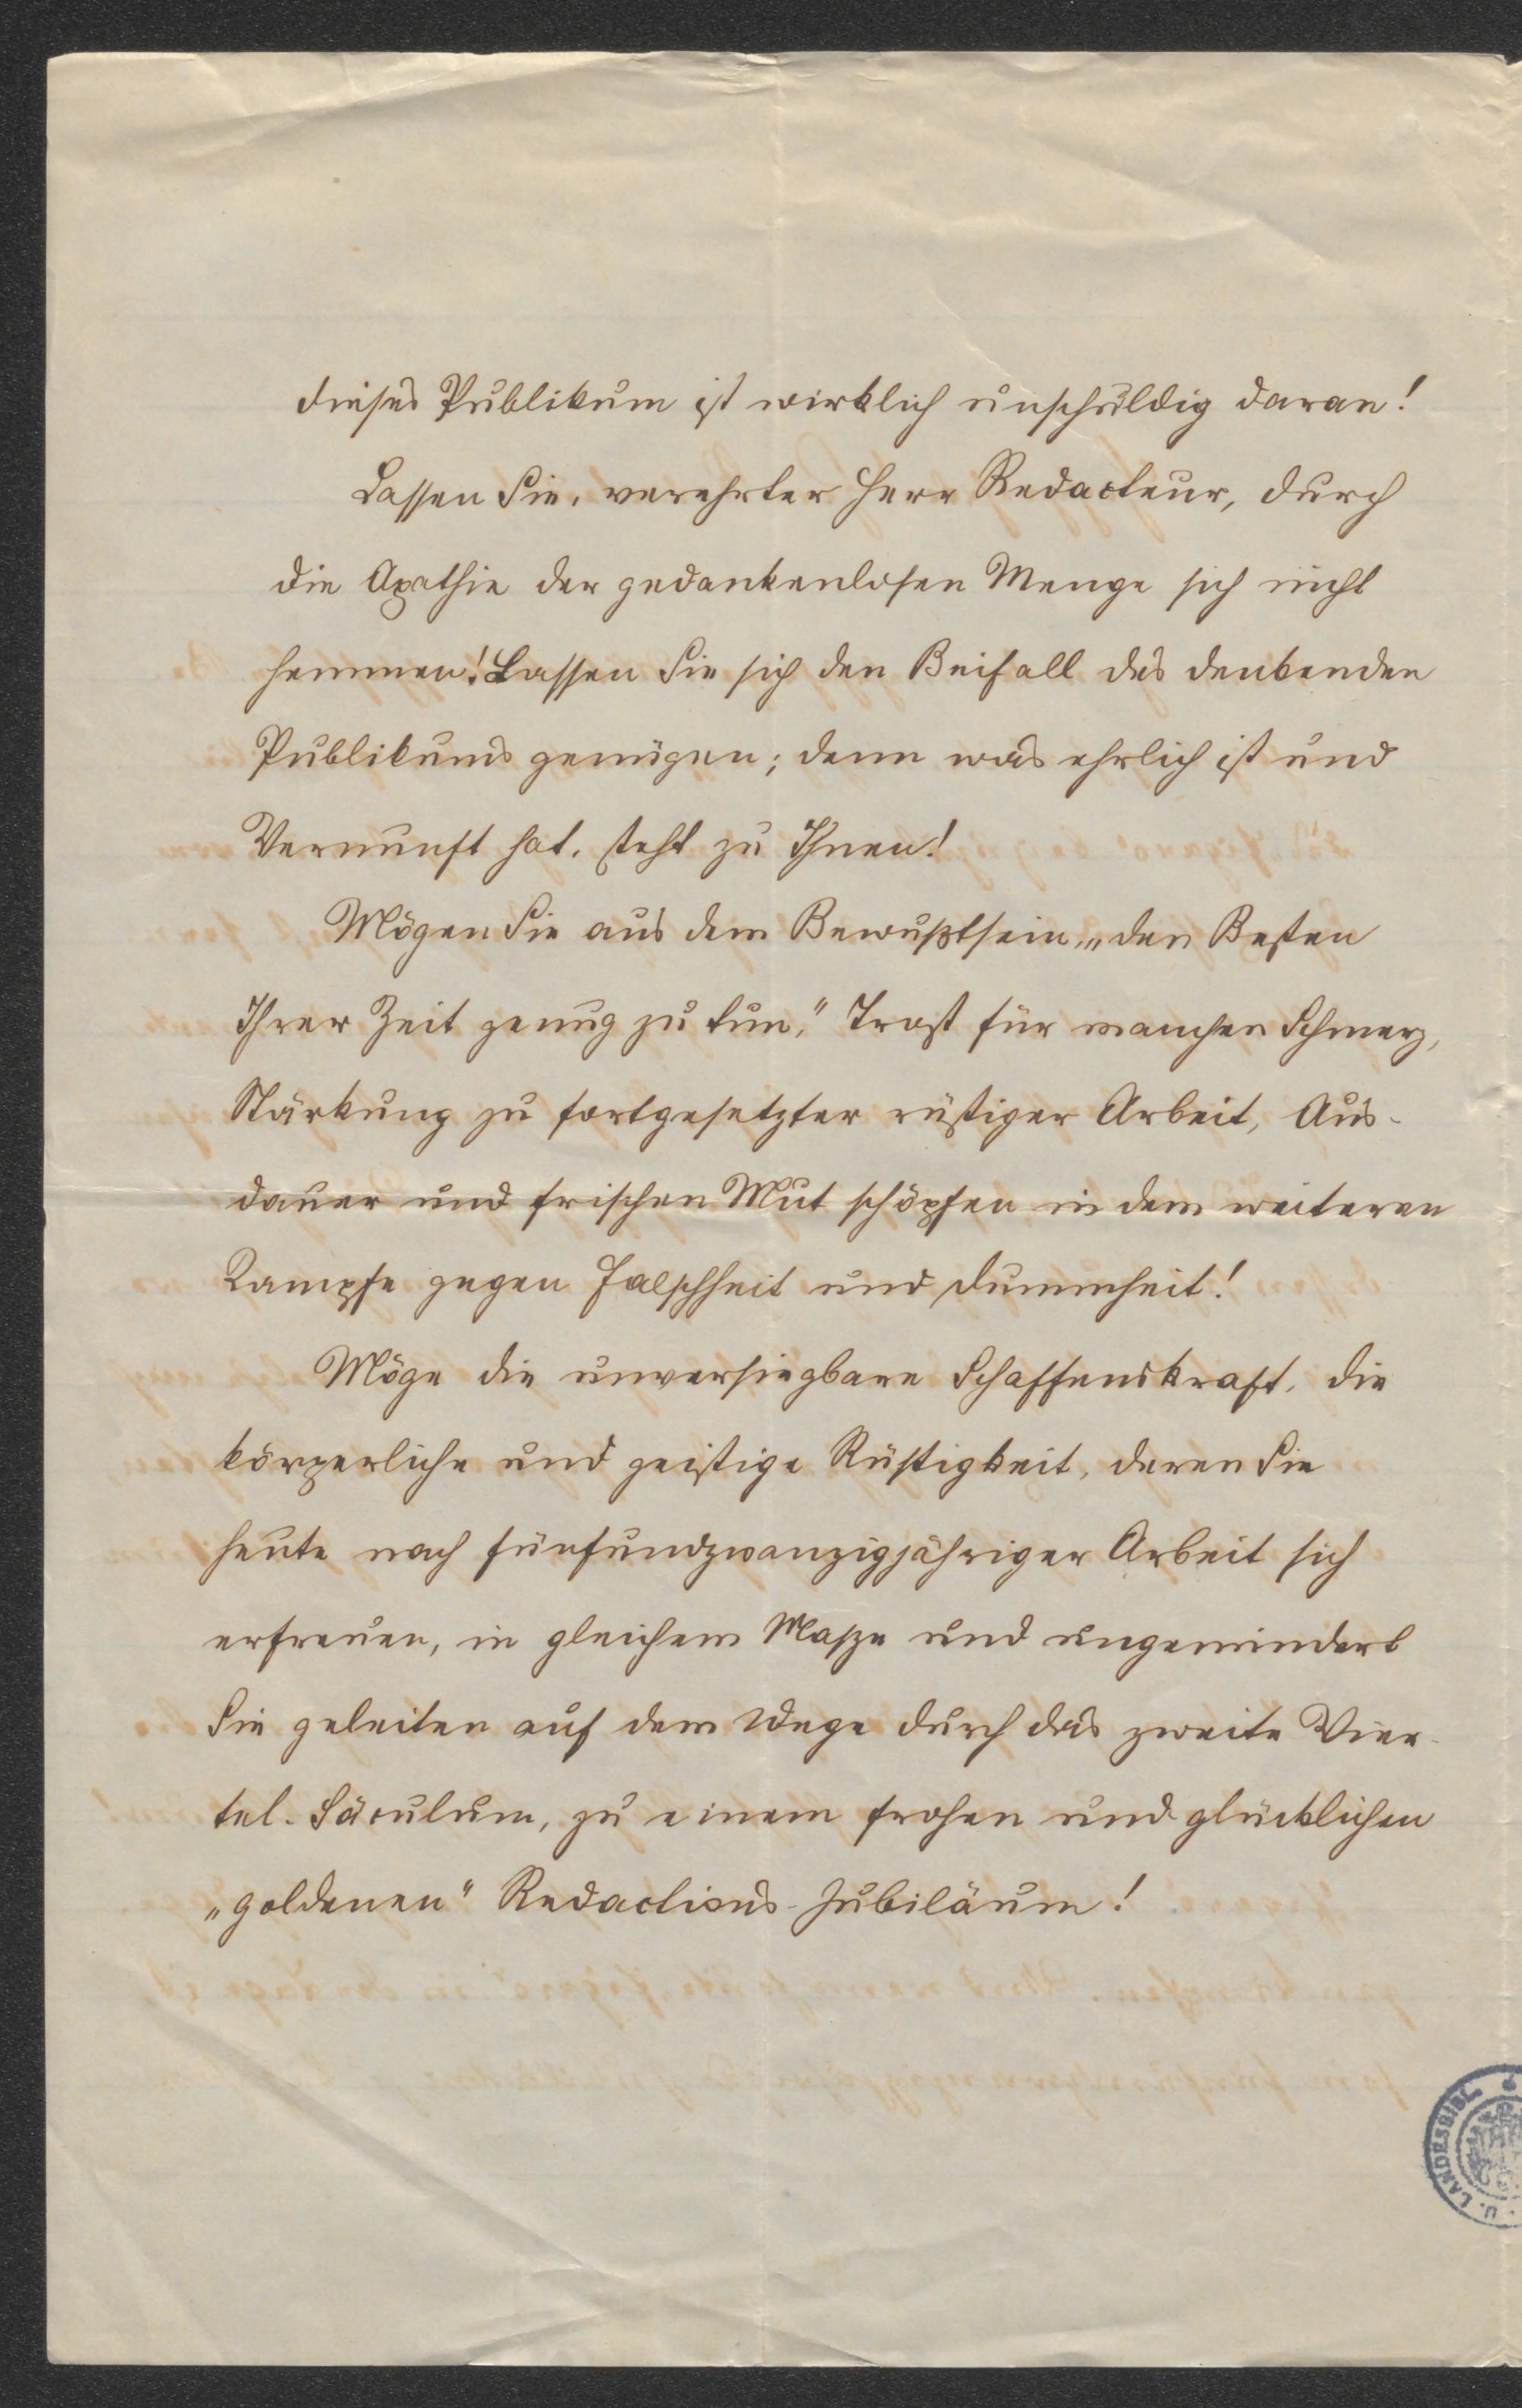 dieses Publikum ist wirklich unschuldig daran!
Lassen Sie, verehrter Herr Redacteur, durch
die Apathie der gedankenlosen Menge sich nicht
hemmen! Lassen Sie sich den Beifall des denkenden
Publikums genügen; denn was ehrlich ist und
Vernunft hat, steht zu Ihnen!
Mögen Sie aus dem Bewußtsein, „den Besten
Ihrer Zeit genug zu tun," Trost für manchen Schmerz,
Stärkung zu fortgesetzter rüstiger Arbeit, Aus-
dauer und frischen Mut schöpfen in dem weiteren
Kampfe gegen Falschheit und Dummheit!
Möge die unversiegbare Schaffenskraft, die
körperliche und geistige Rüstigkeit, deren Sie
heute nach fünfundzwanzigjähriger Arbeit sich
erfreuen, in gleichem Masze und ungemindert
Sie geleiten auf dem Wege durch das zweite Vier-
tel-Säculum, zu einem frohen und glücklichen
„goldenen" Redactions-Jubiläum!
U. LANDESBIBL.